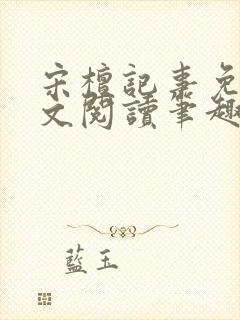 宋檀記事免
文閱讀筆趣
藍玉